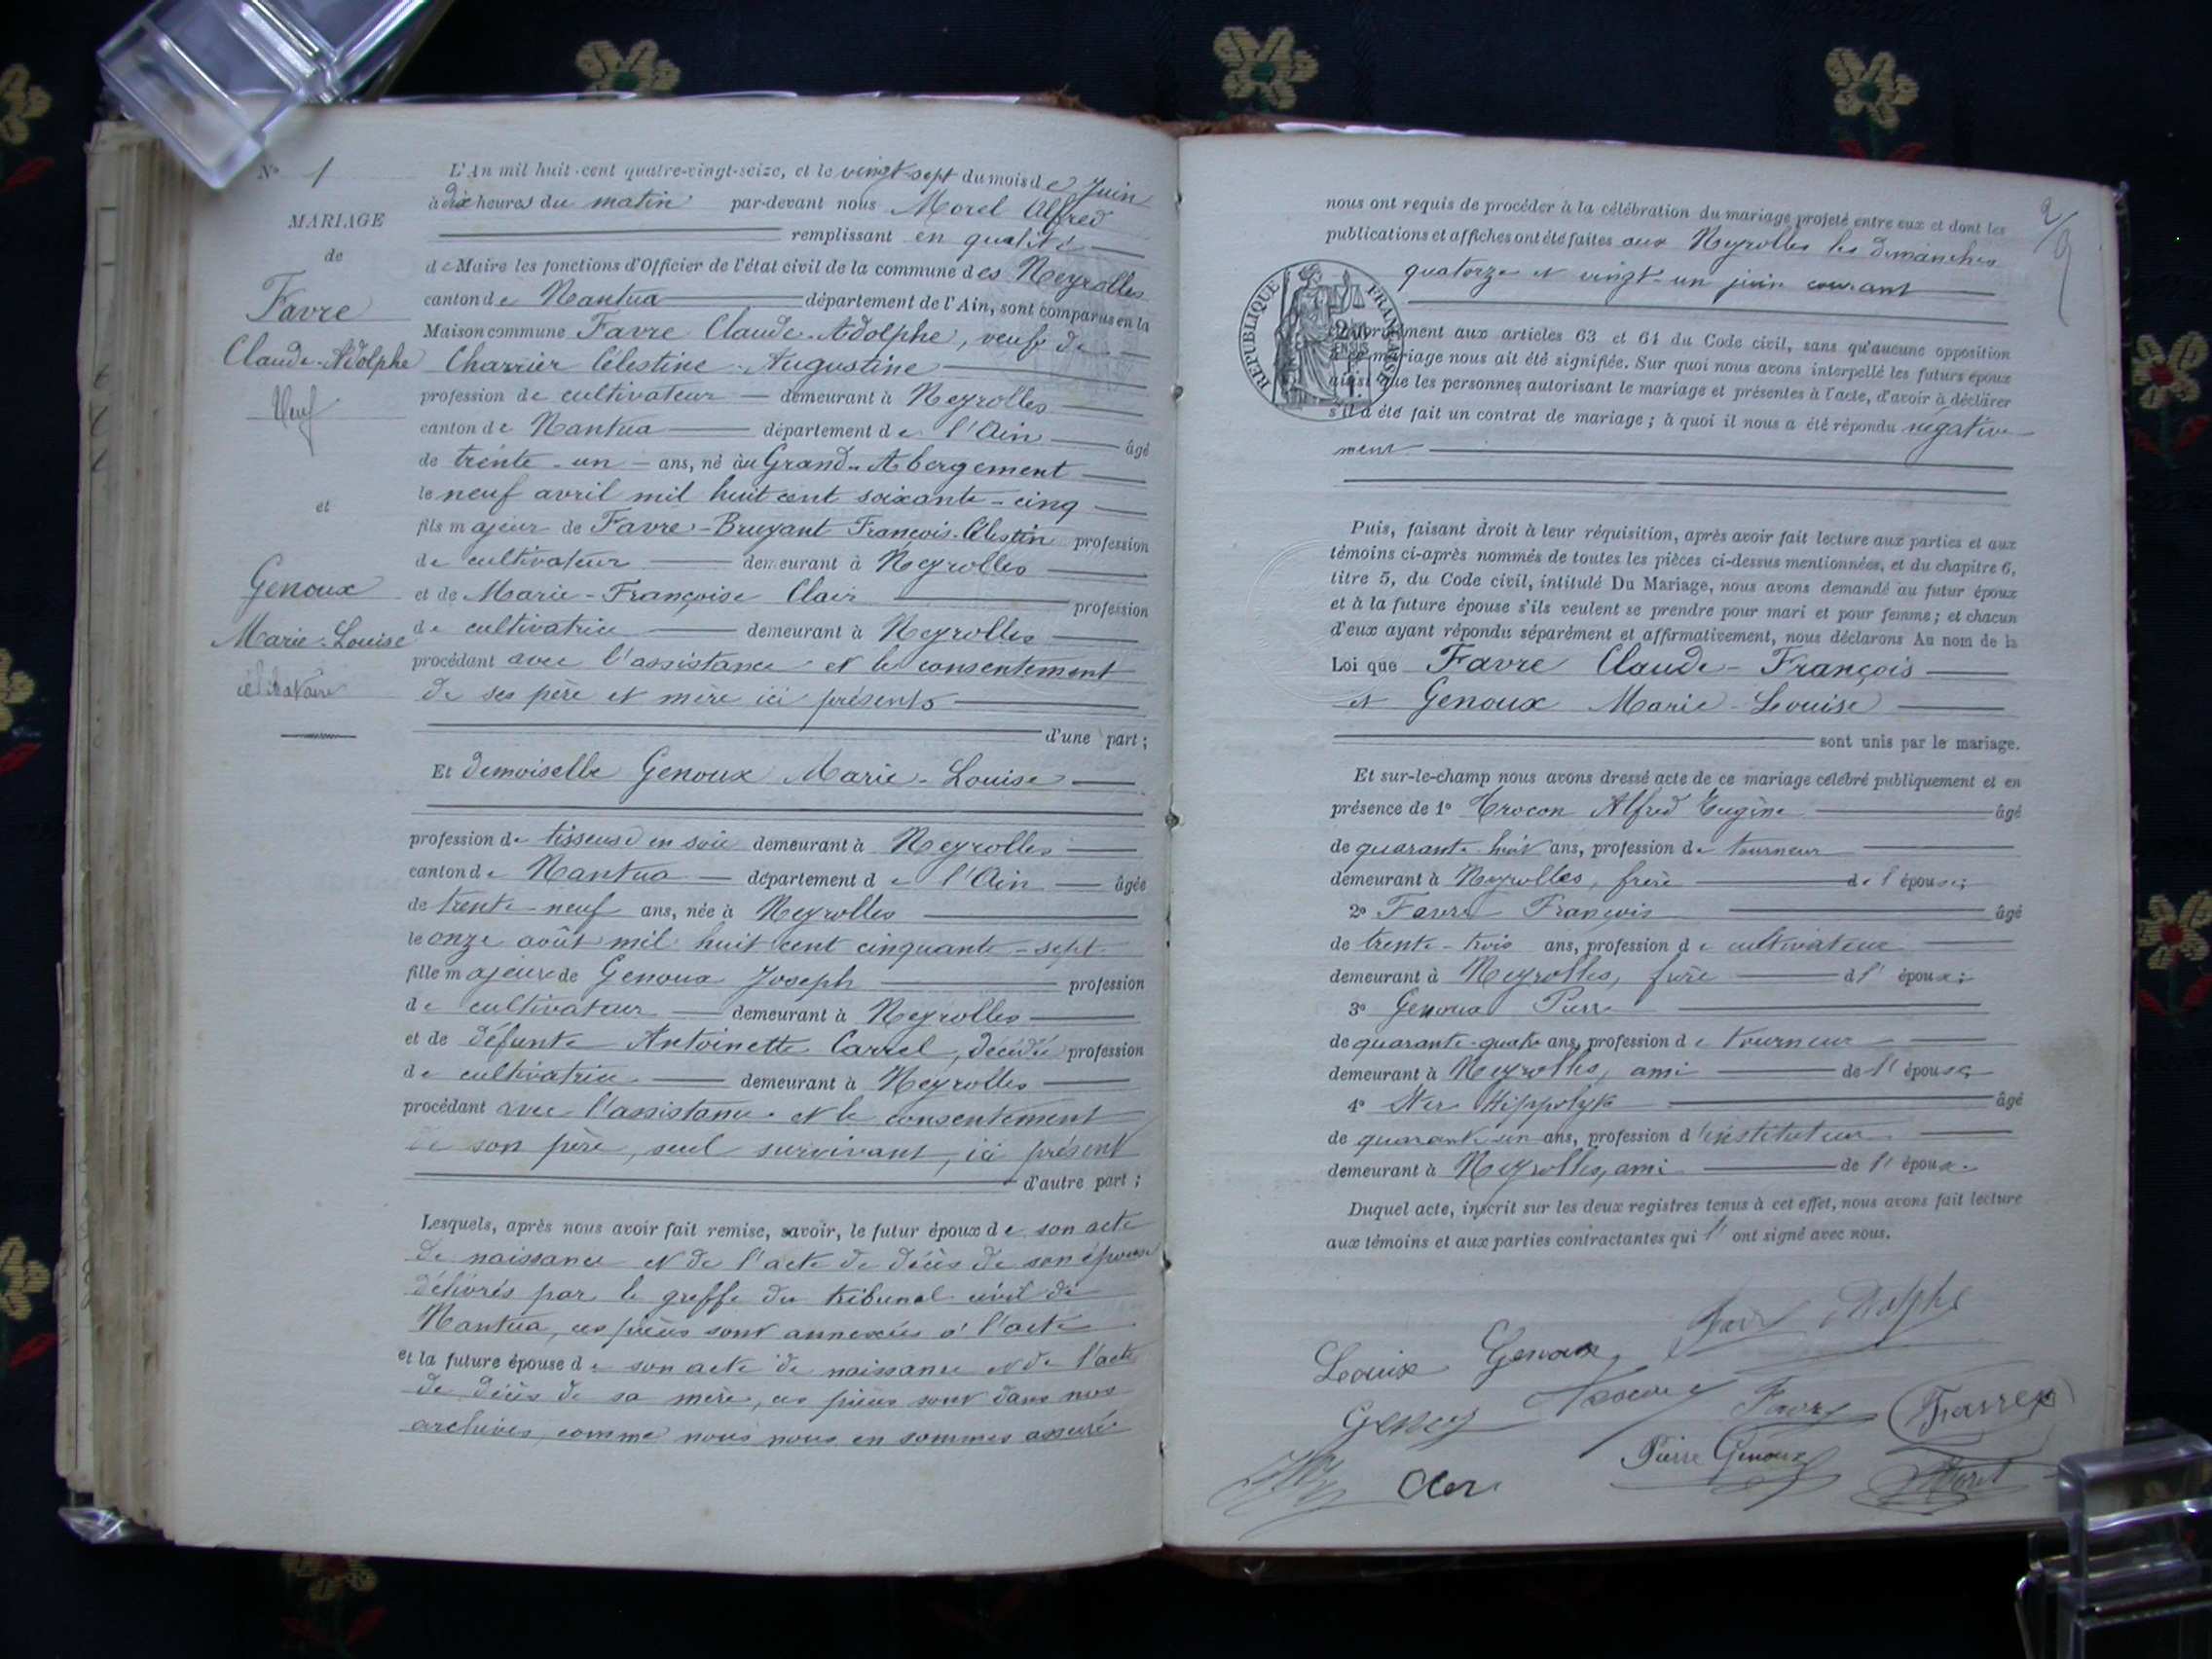 N° 1
MARIAGE
de
Favre
Claude-Adolphe
Veuf
et
Genoux
Marie-Louise
célibataire
L'An mil huit-cent quatre-vingt-seize, et le vingt-sept du mois de Juin
à dix heures du matin par-devant nous Morel Alfred
remplissant en qualité
de Maire les fonctions d'Officier de l'état civil de la commune des Neyrolles
canton de Nantua département de l'Ain, sont comparus en la
Maison commune Favre Claude-Adolphe, veuf de
Charrier Célestine-Augustine
profession de cultivateur demeurant à Neyrolles
canton de Nantua département de l'Ain âgé
de trente-un ans, né au Grand-Abergement
le neuf avril mil huit cent soixante-cinq
fils majeur de Favre-Bruyant François-Célestin profession
de cultivateur demeurant à Neyrolles
et de Marie-Françoise Clair profession
de cultivatrice demeurant à Neyrolles
procédant avec l'assistance et le consentement
de ses père et mère ici présents
d'une part ;
Et demoiselle Genoux Marie-Louise
profession de tisseuse en soie demeurant à Neyrolles
canton de Nantua département de l'Ain âgée
de trente-neuf ans, née à Neyrolles
le onze août mil huit cent cinquante-sept
fille majeure de Genoux Joseph profession
de cultivateur demeurant à Neyrolles
et de défunte Antoinette Carrel, décédée profession
de cultivatrice demeurant à Neyrolles
procédant avec l'assistance et le consentement
de son père, seul survivant, ici présent
d'autre part ;
Lesquels, après nous avoir fait remise, savoir, le futur époux de son acte
de naissance et de l'acte de décès de son épouse
délivrés par le greffe du tribunal civil de
Nantua, ces pièces sont annexées à l'acte
et la future épouse de son acte de naissance et de l'acte
de décès de sa mère, ces pièces sont dans nos
archives, comme nous nous en sommes assuré
nous ont requis de procéder à la célébration du mariage projeté entre eux et dont les
publications et affiches ont été faites aux Neyrolles les dimanches
quatorze et vingt-un juin courant
RÉPUBLIQUE FRANÇAISE
conformément aux articles 63 et 64 du Code civil, sans qu'aucune opposition
à ce mariage nous ait été signifiée. Sur quoi nous avons interpellé les futurs époux
ainsi que les personnes autorisant le mariage et présentes à l'acte, d'avoir à déclarer
s'il a été fait un contrat de mariage ; à quoi il nous a été répondu négative
ment
Puis, faisant droit à leur réquisition, après avoir fait lecture aux parties et aux
témoins ci-après nommés de toutes les pièces ci-dessus mentionnées, et du chapitre 6,
titre 5, du Code civil, intitulé Du Mariage, nous avons demandé au futur époux
et à la future épouse s'ils veulent se prendre pour mari et pour femme ; et chacun
d'eux ayant répondu séparément et affirmativement, nous déclarons Au nom de la
Loi que Favre Claude-François
et Genoux Marie-Louise
sont unis par le mariage.
Et sur-le-champ nous avons dressé acte de ce mariage célébré publiquement et en
présence de 1° Trocon Alfred Eugène âgé
de quarante-huit ans, profession de tourneur
demeurant à Neyrolles, frère de l'épouse ;
2° Favre François âgé
de trente-trois ans, profession de cultivateur
demeurant à Neyrolles, frère d l' époux ;
3° Genoux Pierre
de quarante-quatre ans, profession de tourneur
demeurant à Neyrolles, ami de l'épouse
4° Hippolyte âgé
de quarante-un ans, profession d'instituteur
demeurant à Neyrolles, ami de l'époux.
Duquel acte, inscrit sur les deux registres tenus à cet effet, nous avons fait lecture
aux témoins et aux parties contractantes qui l' ont signé avec nous.
Louise Genoux Adolphe
Trocon Favre
Pierre Genoux Morel